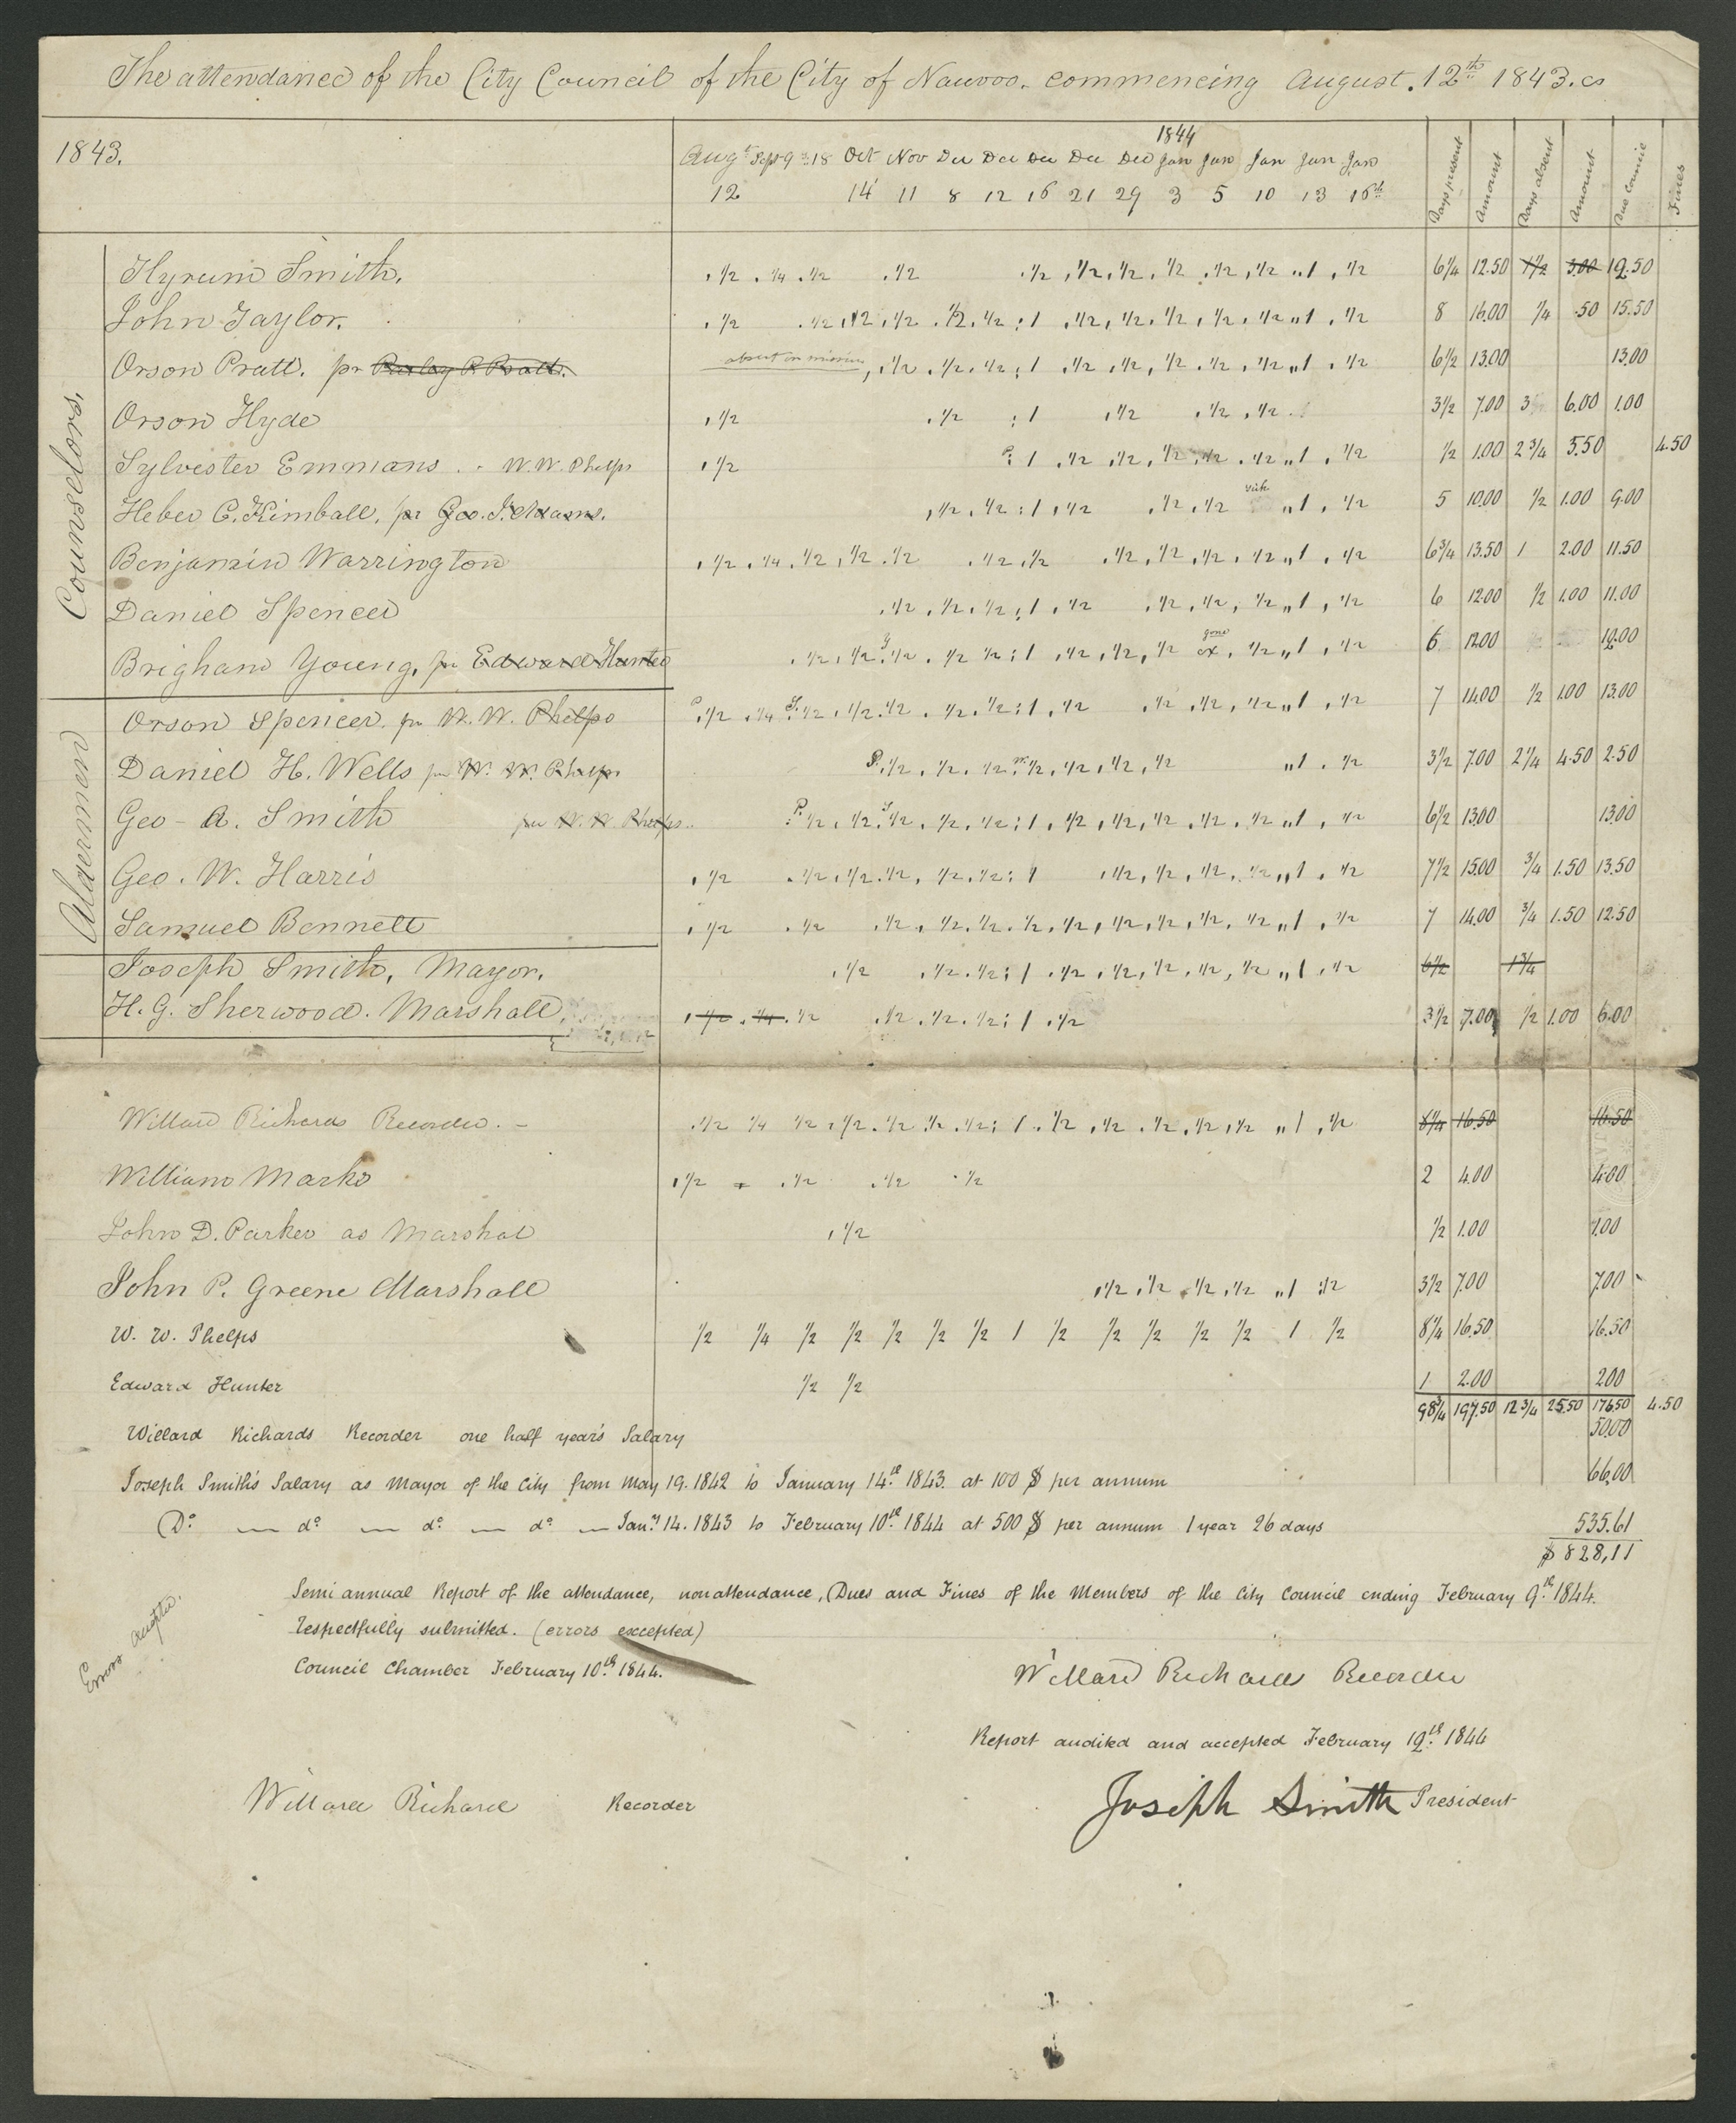 The attendance of the City Council of the City of Nauvoo. commencing August. 12th 1843.
1843. Augt Sept 9 18 Oct Nov Dec Dec Dec Dec Dec 1844 Jan Jan Jan Jan Jan Days present Amount Days absent Amount Due Councie Fines
12 14 11 8 12 16 21 29 3 5 10 13 16th
Counselors.
Hyrum Smith. 1/2 1/4 1/2 1/2 1/2 1/2 1/2 1/2 1/2 1/2 1 1/2 6 1/4 12.50 1 1/2 3.00 12.50
John Taylor. 1/2 1/2 1/2 1/2 1/2 1/2 1 1/2 1/2 1/2 1/2 1/2 1 1/2 8 16.00 1/4 .50 15.50
Orson Pratt. pr Parley P. Pratt. absent on mission 1/2 1/2 1/2 1 1/2 1/2 1/2 1/2 1/2 1 1/2 6 1/2 13.00 13.00
Orson Hyde 1/2 1/2 1 1/2 1/2 1/2 3 1/2 7.00 3 6.00 1.00
Sylvester Emmons W. W. Phelps 1/2 P. 1 1/2 1/2 1/2 1/2 1/2 1 1/2 1/2 1.00 2 3/4 5.50 4.50
Heber C. Kimball, pr Geo. J. Adams. 1/2 1/2 1 1/2 1/2 1/2 sick 1 1/2 5 10.00 1/2 1.00 9.00
Benjamin Warrington 1/2 1/4 1/2 1/2 1/2 1/2 1/2 1/2 1/2 1/2 1/2 1 1/2 6 3/4 13.50 1 2.00 11.50
Daniel Spencer 1/2 1/2 1/2 1 1/2 1/2 1/2 1/2 1 1/2 6 12.00 1/2 1.00 11.00
Brigham Young, pr Edward Hunter 1/2 1/2 1/2 1/2 1/2 1 1/2 1/2 1/2 gone ex 1/2 1 1/2 6 12.00 12.00
Aldermen
Orson Spencer pr W. W. Phelps 1/2 1/4 1/2 1/2 1/2 1/2 1/2 1 1/2 1/2 1/2 1/2 1 1/2 7 14.00 1/2 1.00 13.00
Daniel H. Wells pr W. W. Phelps P. 1/2 1/2 1/2 1/2 1/2 1/2 1/2 1 1/2 3 1/2 7.00 2 1/4 4.50 2.50
Geo - A. Smith per W. W. Phelps P. 1/2 1/2 1/2 1/2 1/2 1 1/2 1/2 1/2 1/2 1/2 1 1/2 6 1/2 13.00 13.00
Geo. W. Harris 1/2 1/2 1/2 1/2 1/2 1/2 1 1/2 1/2 1/2 1/2 1 1/2 7 1/2 15.00 3/4 1.50 13.50
Samuel Bennett 1/2 1/2 1/2 1/2 1/2 1/2 1/2 1/2 1/2 1/2 1/2 1 1/2 7 14.00 3/4 1.50 12.50
Joseph Smith, Mayor. 1/2 1/2 1/2 1 1/2 1/2 1/2 1/2 1/2 1 1/2 6 1/2 1 3/4
H. G. Sherwood. Marshall. 1/2 1/4 1/2 1/2 1/2 1/2 1 1/2 3 1/2 7.00 1/2 1.00 6.00
Willard Richards Recorder. - 1/2 1/4 1/2 1/2 1/2 1/2 1/2 1 1/2 1/2 1/2 1/2 1/2 1 1/2 8 1/4 16.50 16.50
William Marks 1/2 1/2 1/2 1/2 2 4.00 4.00
John D. Parker as Marshal 1/2 1/2 1.00 1.00
John P. Greene Marshall 1/2 1/2 1/2 1/2 1 1/2 3 1/2 7.00 7.00
W. W. Phelps 1/2 1/4 1/2 1/2 1/2 1/2 1/2 1 1/2 1/2 1/2 1/2 1/2 1 1/2 8 1/4 16.50 16.50
Edward Hunter 1/2 1/2 1 2.00 2.00
98 3/4 197.50 12 3/4 25.50 176.50 4.50
Willard Richards Recorder one half year's Salary 50.00
Joseph Smith's Salary as Mayor of the City from May 19. 1842 to January 14th 1843. at 100 $ per annum 66,00
Do — do — do — do — Jany 14. 1843 to February 10th 1844 at 500 $ per annum 1 year 26 days 535.61
$ 828,11
Semi annual Report of the attendance, nonattendance, Dues and Fines of the Members of the City Council ending February 9th 1844.
Respectfully submitted. (errors excepted)
Council Chamber February 10th 1844.
Errors excepted.
Willard Richards Recorder
Report audited and accepted February 12th 1844
Willard Richard Recorder
Joseph Smith President